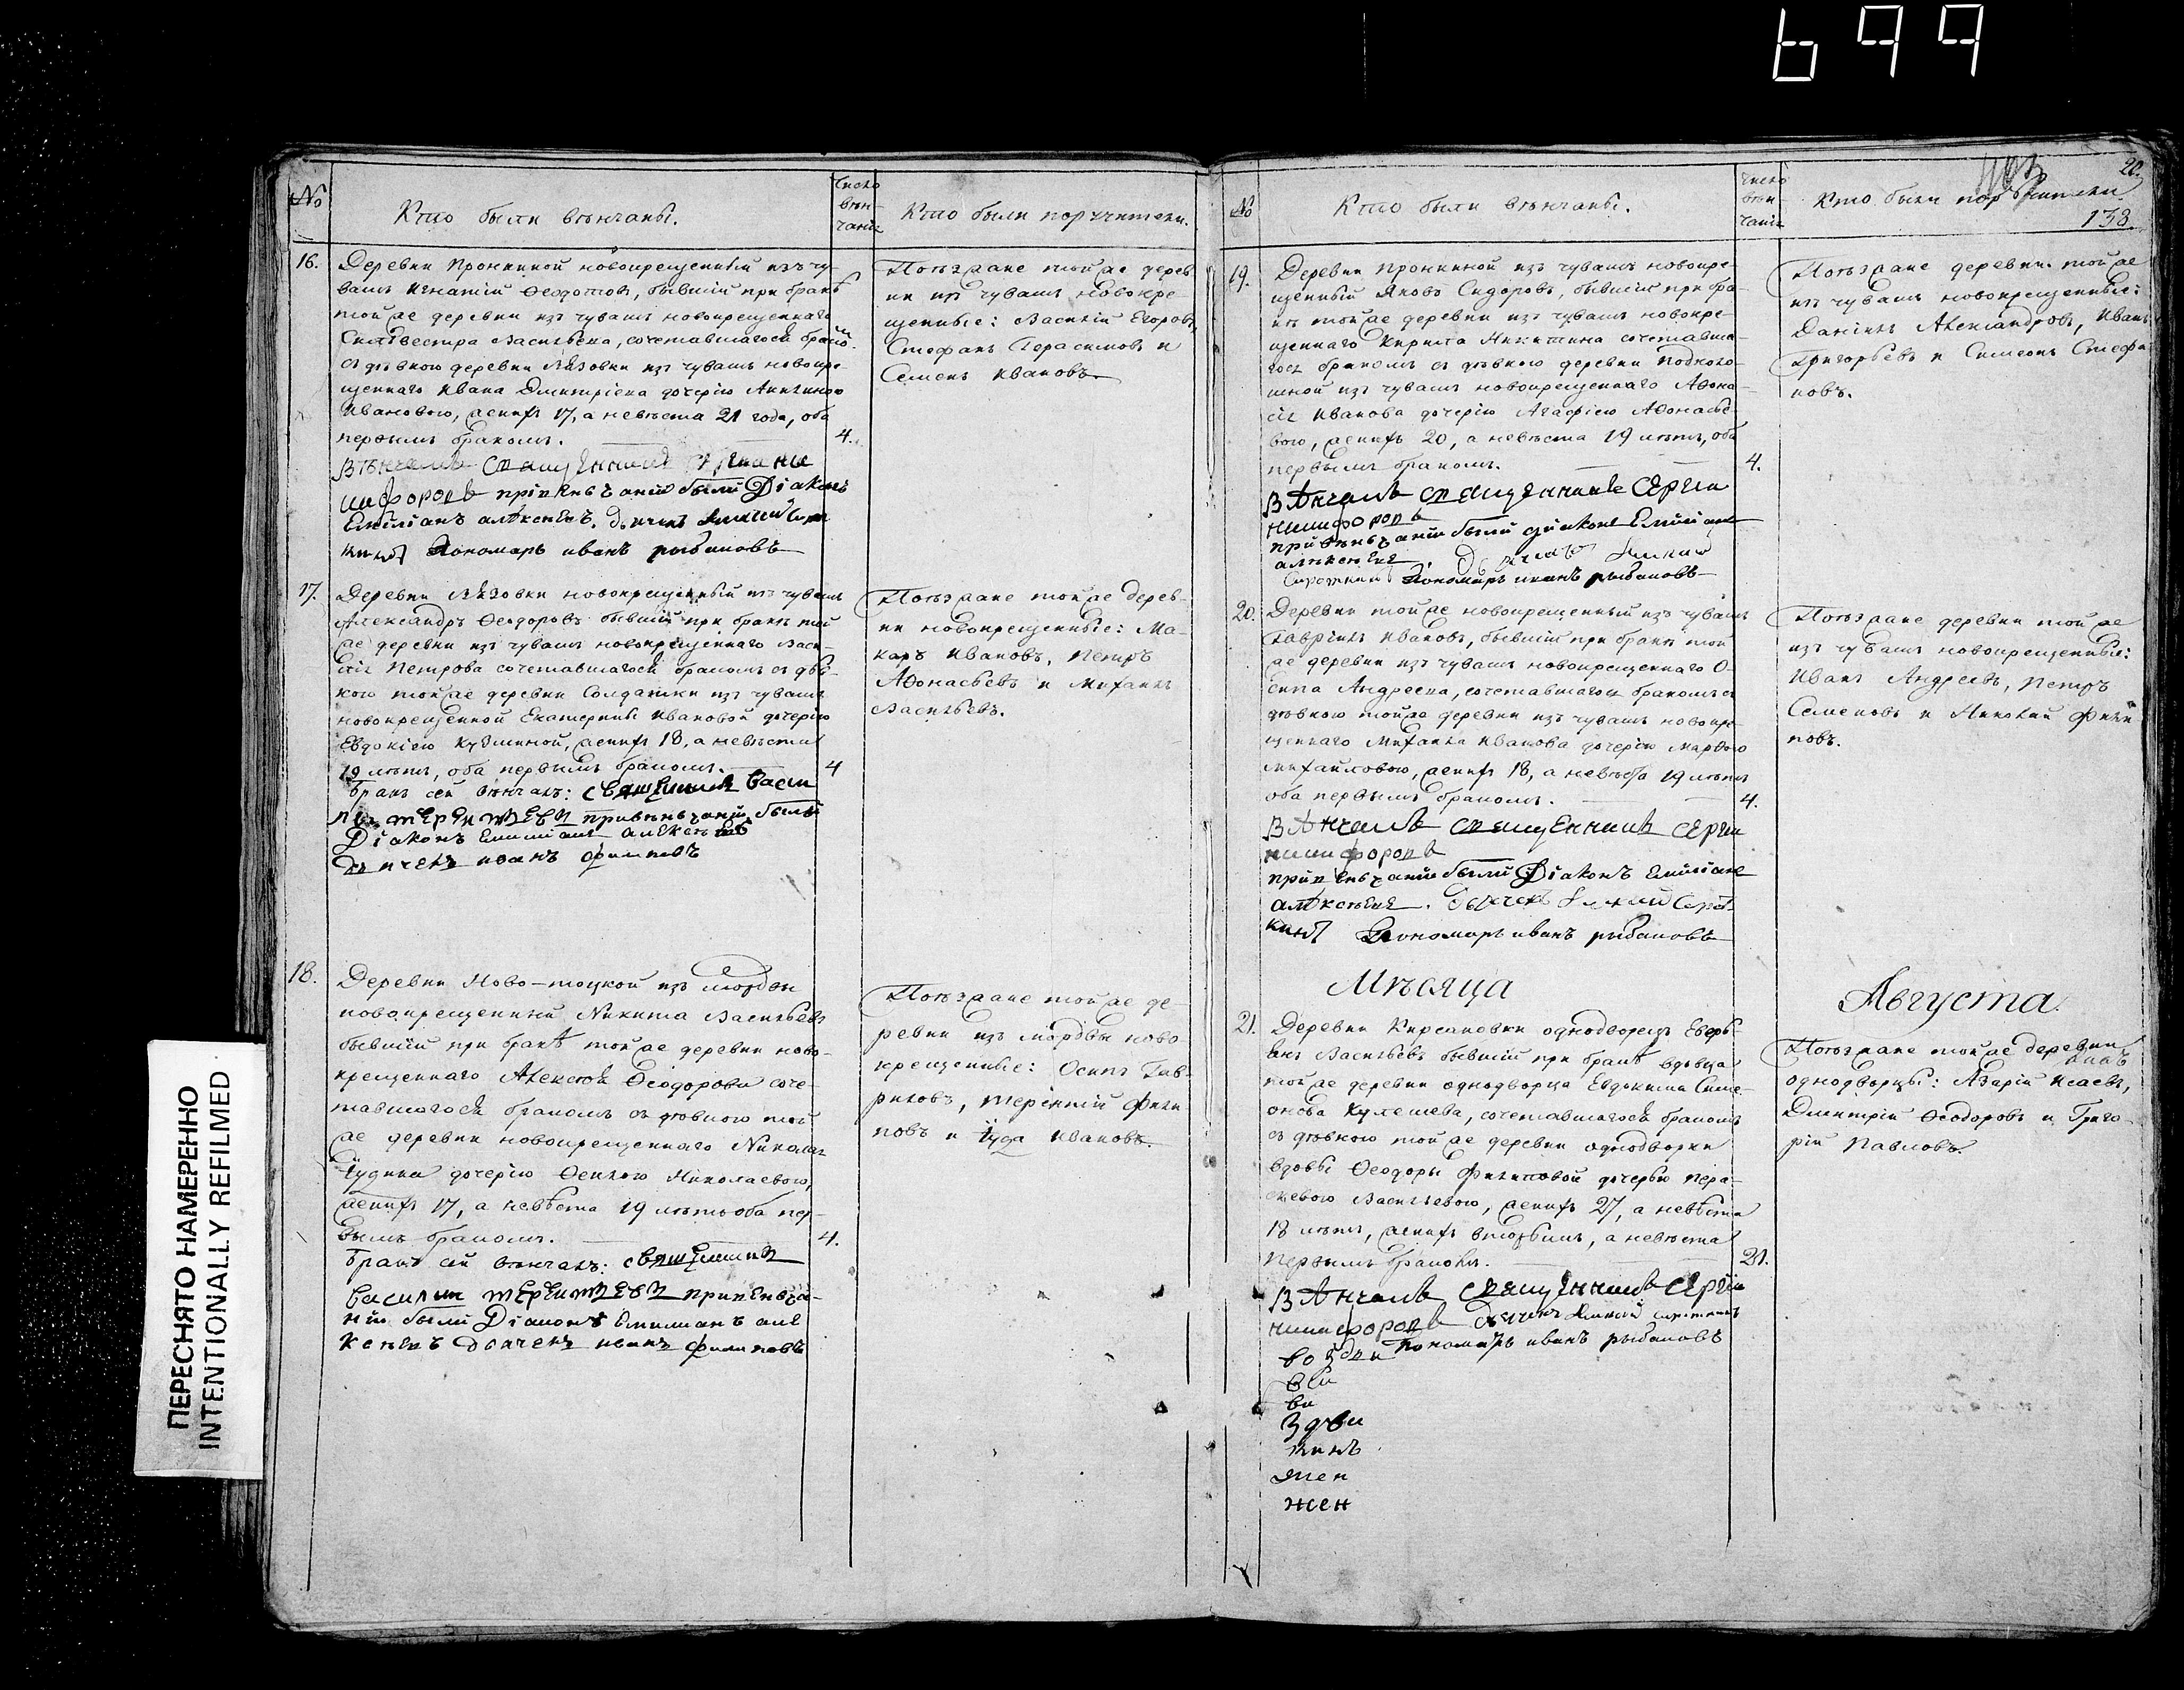 699
ПЕРЕСНЯТО НАМЕРЕННО
INTENTIONALLY REFILMED
№
Кто были вѣнчаны.
Число
вѣн-
чанія
Кто были поручители.
16.
Деревни Пронкиной новокрещенный изъ чу-
вашъ Игнатій Ѳеодотовъ, бывшій при бракѣ
той же деревни изъ чувашъ новокрещеннаго
Силивестра Васильева, сочетавшагося бракомъ
съ дѣвкою деревни Лязовки изъ чувашъ новокре-
щеннаго Ивана Дмитріева дочерію
Ивановою, женихъ 17, а невѣста 21 года, оба
первымъ бракомъ.
4.
Вѣнчалъ священникъ Сергий Ни
кифоровъ при венчании были Діаконъ
Емилианъ алѣксеевъ. дьячекъ
Пономарь иванъ рыбаковъ
Поѣзжане той же дерев
ни изъ чувашъ новокре
щенные: Василій Егоровъ,
Стефанъ Герасимовъ и
Семенъ Ивановъ.
17.
Деревни Лязовки новокрещенный изъ чувашъ
Александръ Ѳеодоровъ бывшій при бракѣ той
же деревни изъ чувашъ новокрещеннаго Васи-
лія Петрова сочетавшагося бракомъ съ дѣв-
кою той же деревни Солдатки изъ чувашъ
новокрещенной Екатерины Ивановой дочерію
Евдокіею Кузминой, женихъ 18, а невѣста
19 лѣтъ, оба первымъ бракомъ.
4
бракъ сей вѣнчалъ: священникъ васи
лий терентьевъ при венчании были
Діаконъ Емилианъ алексеевъ
дьячекъ иванъ филиповъ
Поѣзжане той же дерев-
ни новокрещенные: Ма-
каръ Ивановъ, Петръ
Аѳонасьевъ и Михаилъ
Васильевъ.
18.
Деревни Ново-тоцкой изъ мордвы
новокрещенный Никита Васильевъ
бывшій при бракѣ той же деревни ново-
крещеннаго Алексѣя Ѳеодорова соче-
тавшагося бракомъ съ дѣвкою той
же деревни новокрещеннаго Николая
Іудина дочерію Ѳеклою Николаевою,
женихъ 17, а невѣста 19 лѣтъ оба пер-
вымъ бракомъ.
4.
бракъ сей вѣнчалъ: священникъ
василий терентьевъ при венча-
нии были Діаконъ Емилианъ але
ксеевъ дьячекъ иванъ филиповъ
Поѣзжане той же де-
ревни изъ мордвы ново
крещенные: Осипъ Гав-
риловъ, Терентій Фили
повъ и Іуда Ивановъ.
20.
138.
№
Кто были вѣнчаны.
Число
вѣн
чанія
Кто были поручители
19.
Деревни Пронкиной изъ чувашъ новокре-
щенный Яковъ Сидоровъ, бывшій при бра-
кѣ той же деревни изъ чувашъ новокре-
щеннаго Кирила Никитина сочетавша-
гося бракомъ съ дѣвкою деревни Подколо-
шной изъ чувашъ новокрещеннаго Аѳона-
сія Иванова дочерію Агафіею Аѳонасье-
вою, женихъ 20, а невѣста 19 лѣтъ, оба
первымъ бракомъ.
4.
Вѣнчалъ священникъ Сергий
Никифоровъ
при венчании были диаконъ Емилианъ
алѣксеевъ. Дьячекъ
Пономарь иванъ рыбаковъ
Поѣзжане деревни той же
изъ чувашъ новокрещенные:
Даніилъ Александровъ, Иванъ
Григорьевъ и Симеонъ Стефа
новъ.
20.
Деревни той же новокрещенный изъ чувашъ
Гавріилъ Ивановъ, бывшій при бракѣ той
же деревни изъ чувашъ новокрещеннаго О-
сипа Андреева, сочетавшагося бракомъ съ
дѣвкою той же деревни изъ чувашъ новокре-
щеннаго Михаила Иванова дочерію Марѳою
Михайловою, женихъ 18, а невѣста 19 лѣтъ
оба первымъ бракомъ.
4.
Вѣнчалъ священникъ Сергий
никифоровъ
при венчании были Діаконъ Емилианъ
алѣксеевъ. Дьячекъ
Пономарь иванъ рыбаковъ
Поѣзжане деревни той же
изъ чувашъ новокрещенные:
Иванъ Андреевъ, Петръ
Семеновъ и Николай Фили
повъ.
Мѣсяца
Августа
21.
Деревни Кирсановки однодворецъ
Васильевъ бывшій при бракѣ вдовца
той же деревни однодворца Евдокима Симе-
онова Кулешева, сочетавшагося бракомъ
съ дѣвкою той же деревни однодворки
вдовы Ѳеодоры Филиповой дочерью Пара-
скевою Васильевою, женихъ 27, а невѣста
18 лѣтъ, женихъ вторымъ, а невѣста
первымъ бракомъ.
21.
Вѣнчалъ священникъ Сергий
никифоровъ дьячекъ
Пономарь иванъ рыбаковъ
Поѣзжане той же деревни
однодворцы: Азарій Исаевъ,
Дмитрій Ѳеодоровъ и Григо-
рій Павловъ.
ви
жен